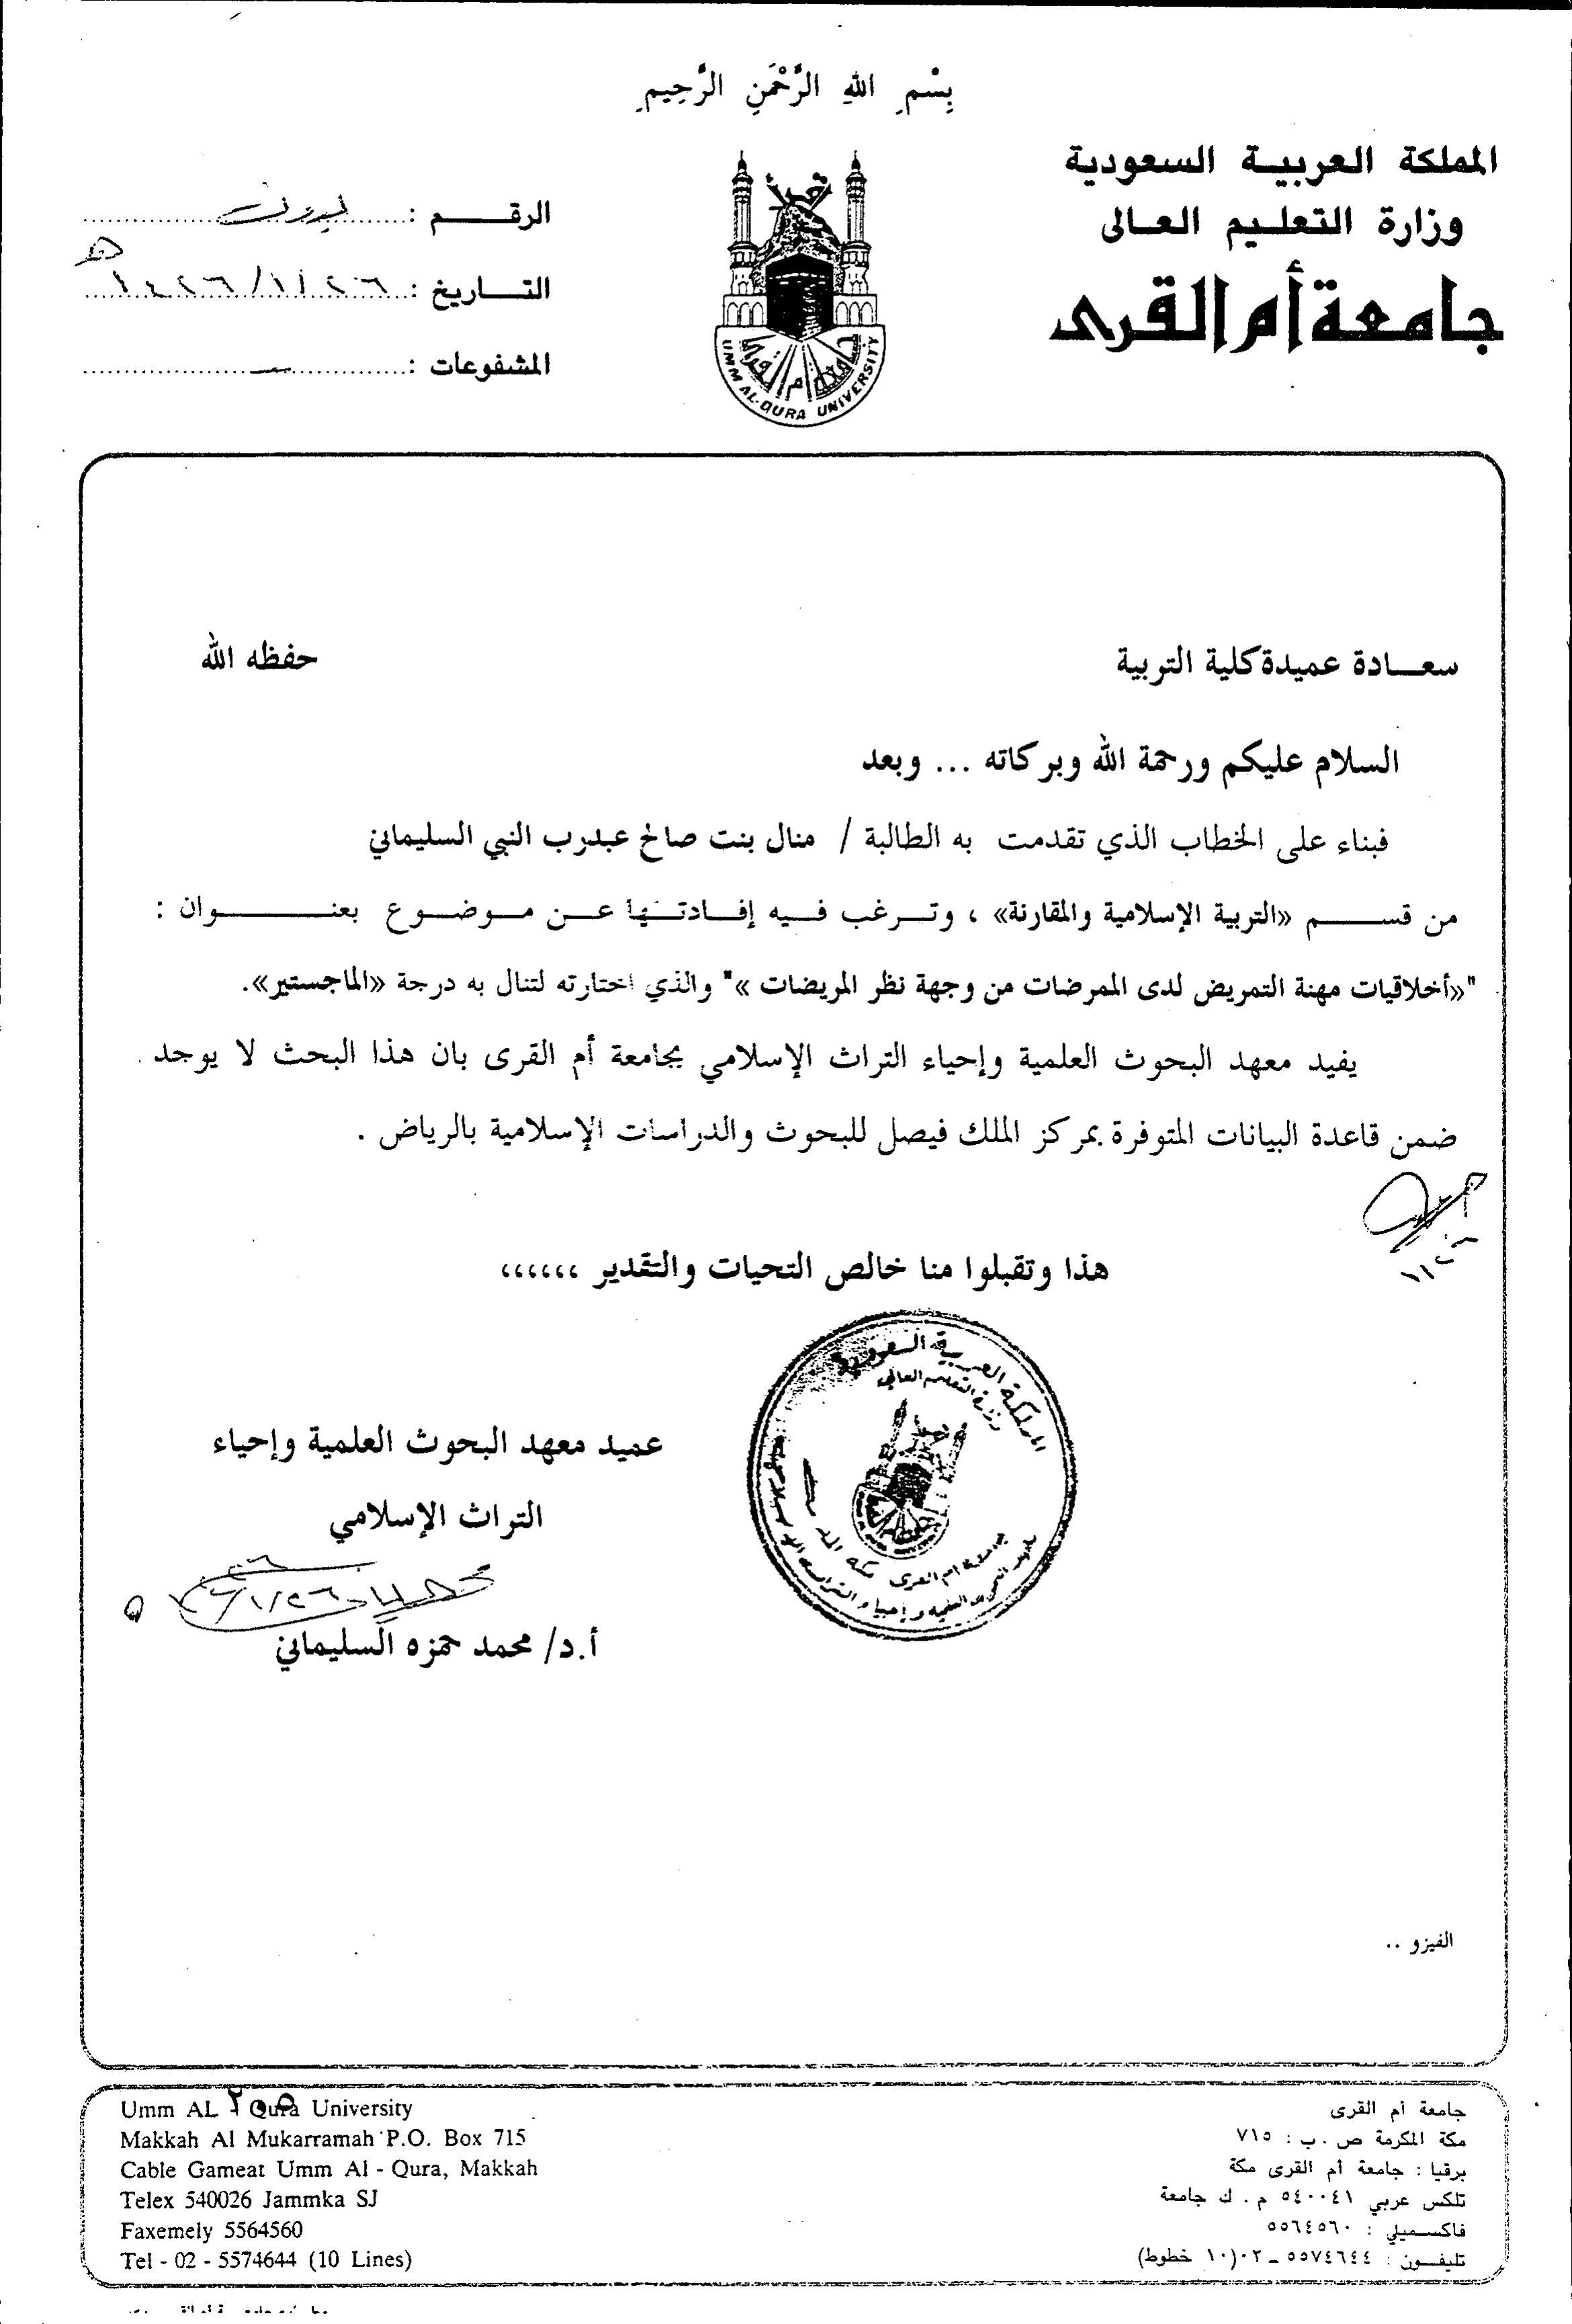 بِسْمِ اللهِ الرَّحْمَنِ الرَّحِيمِ
المملكة العربية السعودية
وزارة التعليم العالى
جامعة أم القرى
الرقم : بدون
التاريخ : ١٤٢٦/١/٢٦ هـ
المشفوعات : ــ
UMM AL-QURA UNIVERSITY
سعادة عميدة كلية التربية حفظه الله
السلام عليكم ورحمة الله وبركاته ... وبعد
فبناء على الخطاب الذي تقدمت به الطالبة / منال بنت صالح عبدرب النبي السليماني
من قسم «التربية الإسلامية والمقارنة» ، وترغب فيه إفادتها عن موضوع بعنوان :
"«أخلاقيات مهنة التمريض لدى الممرضات من وجهة نظر المريضات »" والذي اختارته لتنال به درجة «الماجستير».
يفيد معهد البحوث العلمية وإحياء التراث الإسلامي بجامعة أم القرى بان هذا البحث لا يوجد
ضمن قاعدة البيانات المتوفرة بمركز الملك فيصل للبحوث والدراسات الإسلامية بالرياض .
هذا وتقبلوا منا خالص التحيات والتقدير ،،،،،،
المملكة العربية السعودية
وزارة التعليم العالي
جامعة أم القرى مكة المكرمة
معهد البحوث العلمية وإحياء التراث الإسلامي
عميد معهد البحوث العلمية وإحياء
التراث الإسلامي
أ.د/ محمد حمزه السليماني
الفيزو ..
٢٠٥
Umm AL - Qura University
Makkah Al Mukarramah P.O. Box 715
Cable Gameat Umm Al - Qura, Makkah
Telex 540026 Jammka SJ
Faxemely 5564560
Tel - 02 - 5574644 (10 Lines)
جامعة أم القرى
مكة المكرمة ص . ب : ٧١٥
برقيا : جامعة أم القرى مكة
تلكس عربي ٥٤٠٠٤١ م . ك جامعة
فاكسميلي : ٥٥٦٤٥٦٠
تليفون : ٥٥٧٤٦٤٤ - ٠٢ (١٠ خطوط)